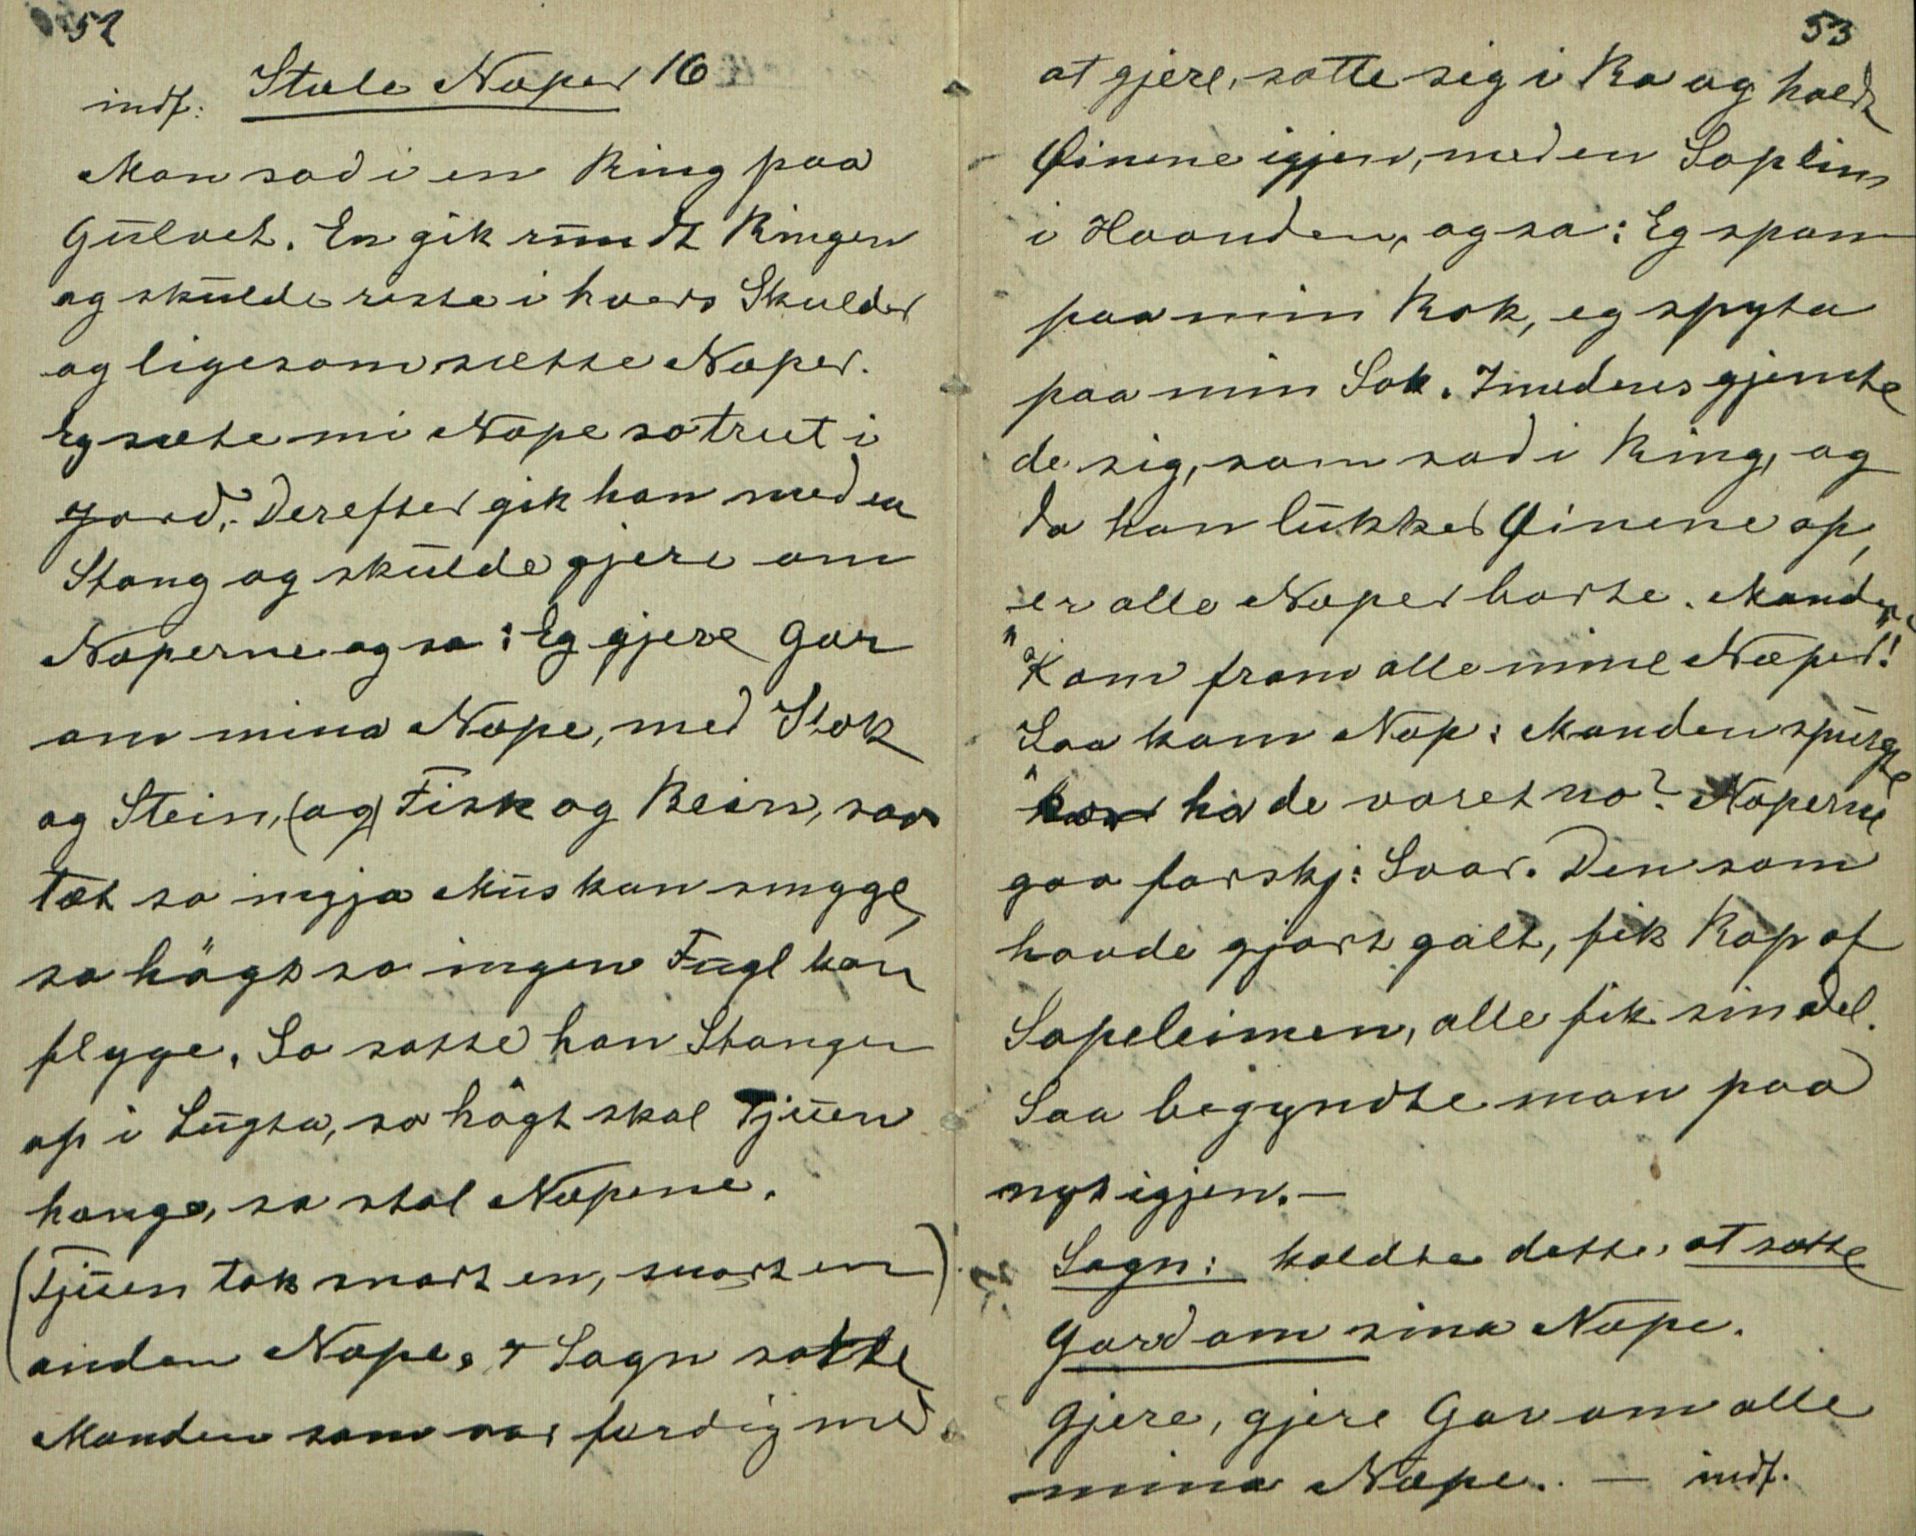 52
indf: Stæle Næper 16
Man sad i en Ring paa
Gulvet. En gik rundt Ringen
og skulde riste i hvers Skulder
og ligesom sætte Næper.
Eg sæte mi Næpe so trut i
Jord. Derefter gik han med en
Stang og skulde gjere om
Næperne og sa: Eg gjere Gar
om mina Næpe, med Stok
og Stein, (og) Fisk og Bein, saa
tæt so ingja Mus kan smyge,
so högt so ingen Fugl kan
flyge. So satte han Stangen
op i Lugta, so högt skal Tjuen
hange, sa stal Næpene.
(Tjuen tok snart en, snart en)
anden Næpe. + Sagn satte
Manden som var færdig med
53
at gjere, satte sig i Ro og holdt
Øinene igjen, med en Soplim
i Haanden, og sa: Eg spann
paa min Rok, eg spyta
paa min Sok. Imedens gjemte
de sig, som sad i Ring, og
da han lukker Øinene op,
er alle Næper borte. Manden:
"Kom fram alle mine Næper"!
Saa kom Næp: Manden spurgte
"kor ha de været no? Næperne
gav forskj: Svar. Den som
havde gjort galt, fik Rap af
Sopeleimen, alle fik sin Del.
Saa begyndte man paa
nyt igjen.—
Sogn: kaldte dette, at sætte
Gard om sina Næpe.
Gjere, gjere Gar om alle
mina Næpe. — indf.